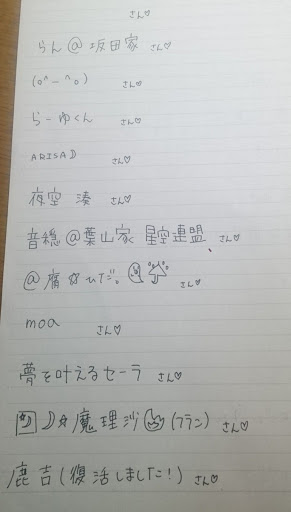 さん♡
らん@坂田家 さん♡
(o^－^o) さん♡
らーゆくん さん♡
ARISAD さん♡
夜空 湊 さん♡
音穏@葉山家 星空連盟 さん♡
@腐☆ さん♡
moa さん♡
夢を叶えるセーラ さん♡
☆魔理沙 (フラン) さん♡
鹿吉(復活しました!) さん♡